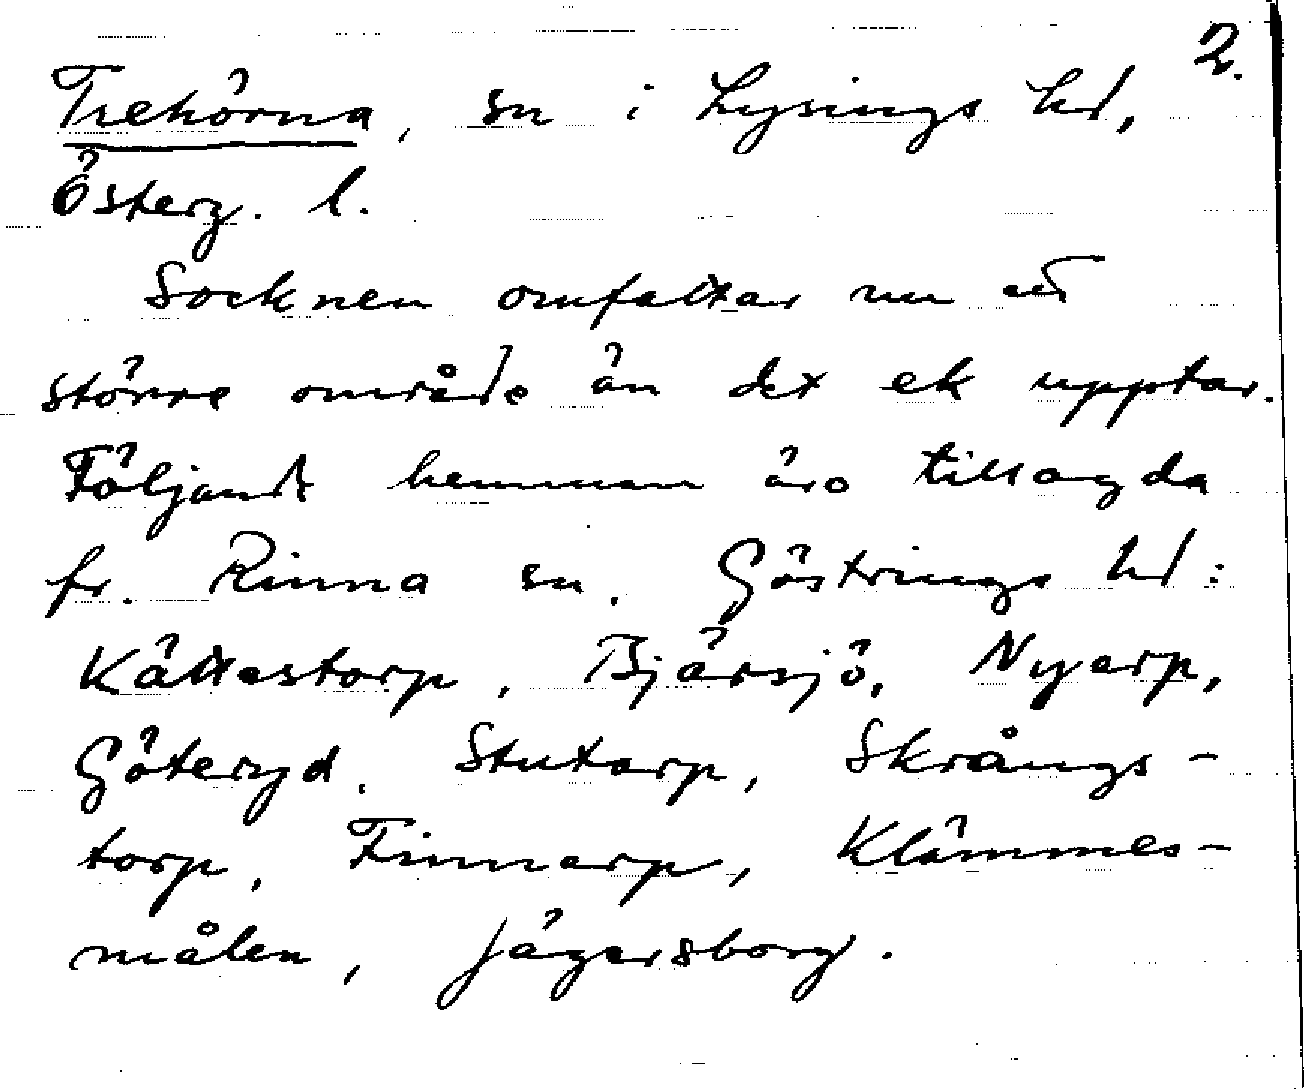 2.
Trehörna, sn i Lysings hd,
Österg. l.
Socknen omfattar nu ett
större område än det ek upptar.
Följande hemman äro tillagda
fr. Rinna sn. Göstrings hd:
Kättestorp, Bjärsjö, Nyarp,
Göteryd. Stutarp, Skrångs-
torp, Finnarp, Klämmes-
målen, Jägersborg.